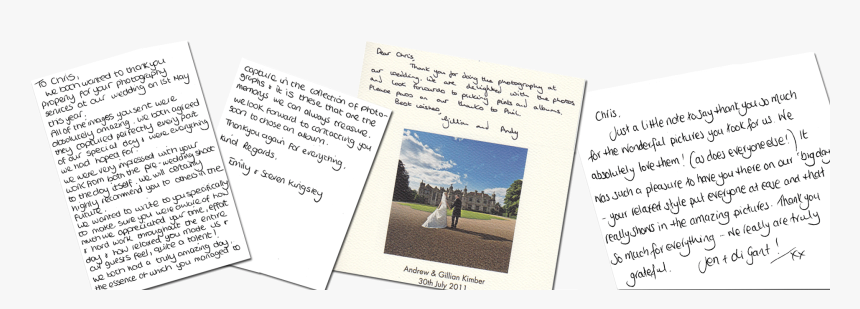 To Chris,
We both wanted to thankyou
properly for your photography
services at our wedding on 1st May
this year.
All of the images you sent were
absolutely amazing. We both agreed
they captured perfectly every part
of our special day & were everything
we had hoped for.
We were very impressed with your
work from both the pre-wedding shoot
to the day itself. We will certainly
highly recommend you to others in the
future.
We wanted to write to you specifically
to make sure you were aware of how
much we appreciated your time, effort
& hard work throughout the entire
day & how relaxed you made us &
our guests feel, quite a talent!
We both had a truly amazing day;
the essence of which you managed to
capture in the collection of photo-
graphs & it is these that are the
memorys we can always treasure.
We look forward to contacting you
soon to chose an album.
Thankyou again for everything,
Kind Regards.
Emily & Steven Kingsley
Dear Chris,
Thank you for doing the photography at
our wedding. We are delighted with the photos
and look forward to picking prints and albums.
Please pass on our thanks to Phil.
Best wishes
Gillian and Andy
Andrew & Gillian Kimber
30th July 2011
Chris.
Just a little note to say thank you so much
for the wonderful pictures you took for us. We
absolutely love them! (as does everyone else!) It
was such a pleasure to have you there on our 'big day'
- your relaxed style put everyone at ease and that
really shows in the amazing pictures. Thank you
so much for everything - we really are truly
grateful.
Jen + di Gant!
xx